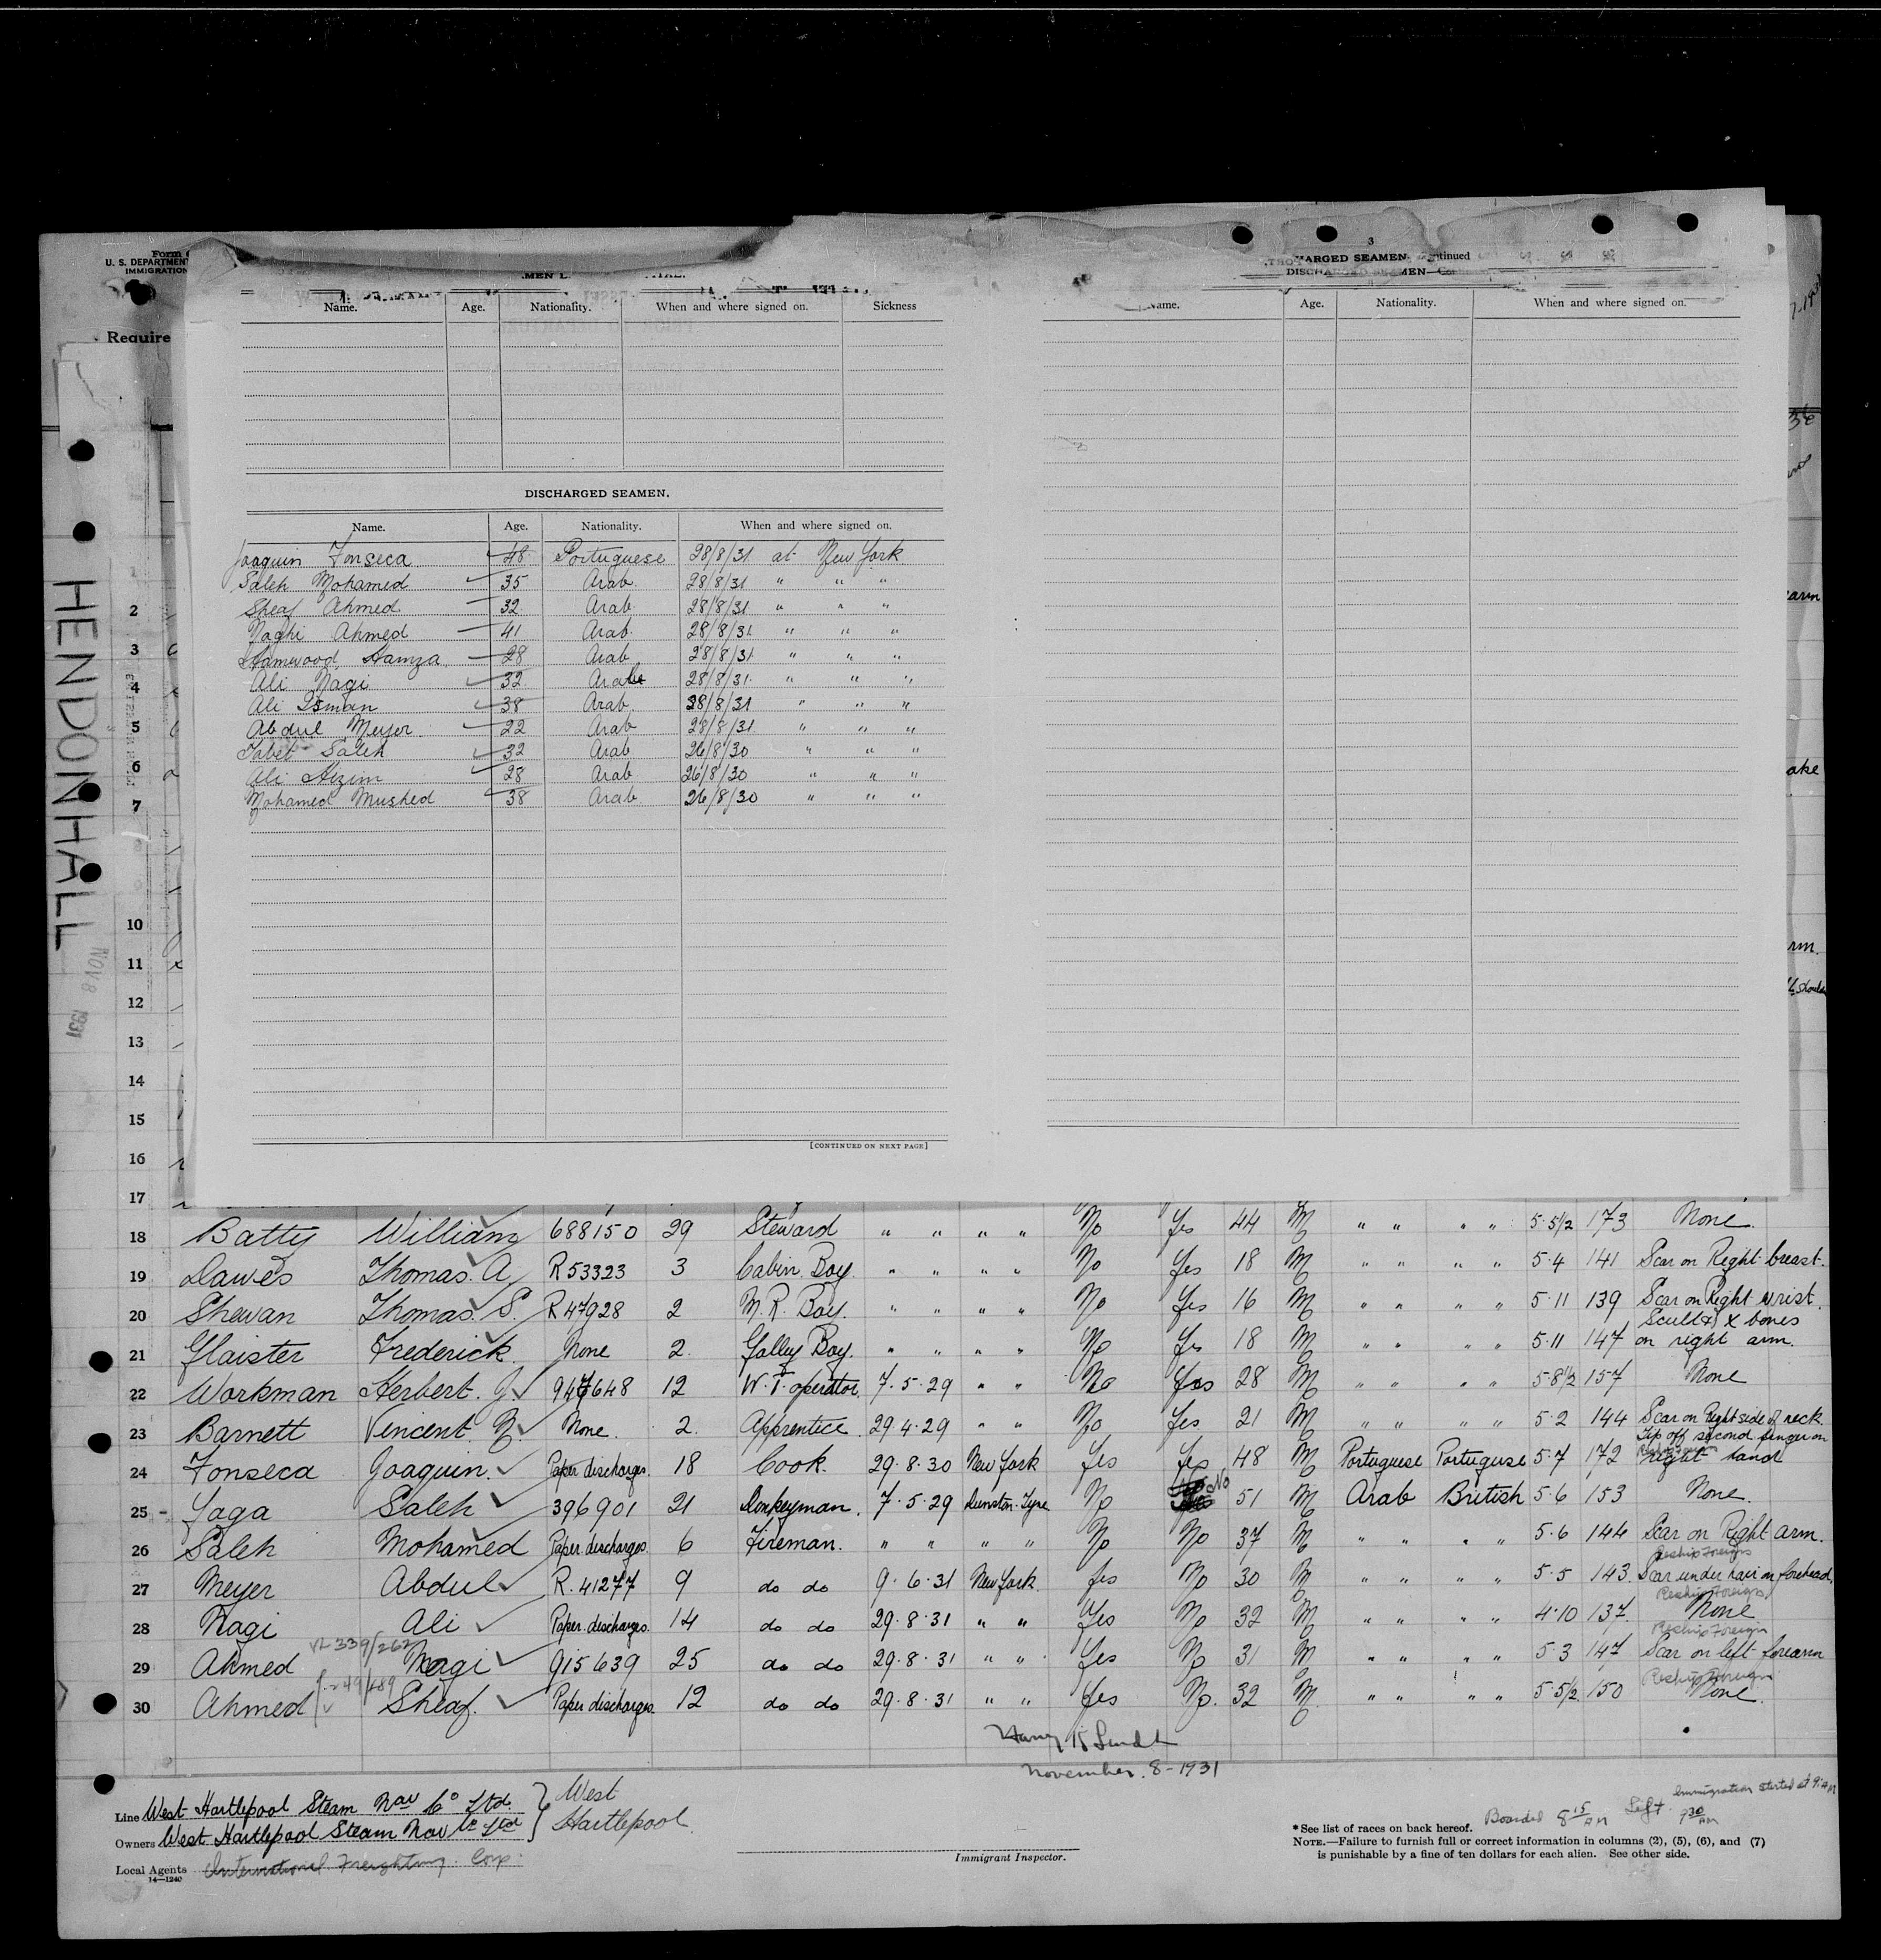 Form
U. S. DEPARTMENT
IMMIGRATION
Require
HENDONHALL
NOV 8 1931
Name. Age. Nationality. When and where signed on. Sickness
DISCHARGED SEAMEN.
Name. Age. Nationality. When and where signed on.
Joaquin Fonseca 48 Portuguese 28/8/31 at New York
Saleh Mohamed 35 Arab 28/8/31 " " "
Sheaf Ahmed 32 Arab 28/8/31 " " "
Naghi Ahmed 41 Arab. 28/8/31 " " "
Hamza 28 Arab 28/8/31 " " "
Ali Nagi 32 28/8/31 " " "
Ali Osman 38 Arab. 28/8/31 " " "
Abdul Meyer 22 Arab 28/8/31 " " "
Saleh 32 Arab 26/8/30 " " "
Ali Azim 28 Arab 26/8/30 " " "
Mohamed Mushed 38 Arab 26/8/30 " " "
[CONTINUED ON NEXT PAGE]
3
CHARGED SEAMEN—Continued
DISCHARGED SEAMEN—Con
Name. Age. Nationality. When and where signed on.
2
3
4
5
6
7
10
11
12
13
14
15
16
17
18 Batty William 688150 29 Steward " " " " No Yes 44 M " " " " 5·5½ 173 None.
19 Dawes Thomas. A R53323 3 Cabin Boy " " " " No Yes 18 M " " " " 5·4 141 Scar on Right breast.
20 Shewan Thomas. S. R47928 2 M. R. Boy. " " " " No Yes 16 M " " " " 5·11 139 Scar on Right wrist.
21 Glaister Frederick None 2. Galley Boy. " " " " No Yes 18 M " " " " 5·11 147 Scull & X bones on right arm.
22 Workman Herbert. J 947648 12 W. T. operator. 7·5·29 " " No Yes 28 M " " " " 5·8½ 157 None
23 Barnett Vincent None. 2. Apprentice 29·4·29 " " No Yes 21 M " " " " 5·2 144 Scar on Right side of neck.
24 Fonseca Joaquin. Paper discharges. 18 Cook. 29·8·30 New York Yes Yes 48 M Portuguese Portuguese 5·7 172 Tip off second finger on right hand
25 - Yaga Saleh 396901 21 Donkeyman. 7·5·29 Dunston-Tyne No No 51 M Arab British 5·6 153 None.
26 Saleh Mohamed Paper discharges. 6 Fireman. " " " " No No 37 M " " " " 5·6 144 Scar on Right arm.
Reship Foreign
27 Meyer Abdul R. 41277 9 do do 9·6·31 New York. Yes No 30 M " " " " 5·5 143. Scar under hair on forehead.
Reship Foreign
28 Nagi Ali Paper discharges. 14 do do 29·8·31 " " Yes No 32 M " " " " 4·10 137. None
Reship Foreign
29 Ahmed Nagi 915639 25 do do 29·8·31 " " Yes No 31 M " " " " 5·3 147 Scar on left forearm
Reship Foreign
30 Ahmed Sheaf. Paper discharges. 12 do do 29·8·31 " " Yes No. 32 M " " " " 5·5½. 150 None.
November. 8-1931
Line West Hartlepool Steam Nav Co Ltd.
Owners West Hartlepool Steam Nav Co Ltd
West Hartlepool
Local Agents International Freighting Corp.
14—1240
Immigrant Inspector.
Immigration started at 9 AM
Boarded 8 15 AM Left 9 30 AM
* See list of races on back hereof.
NOTE.—Failure to furnish full or correct information in columns (2), (5), (6), and (7)
is punishable by a fine of ten dollars for each alien. See other side.